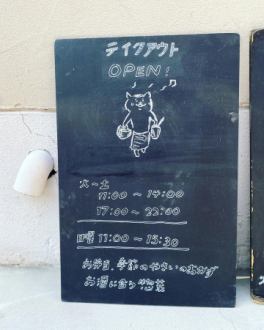 テイクアウト
OPEN!
火〜土
11:00〜14:00
17:00〜22:00
日曜 11:00〜15:30
お弁当、季節のやさいのおかず
お酒に合う惣菜